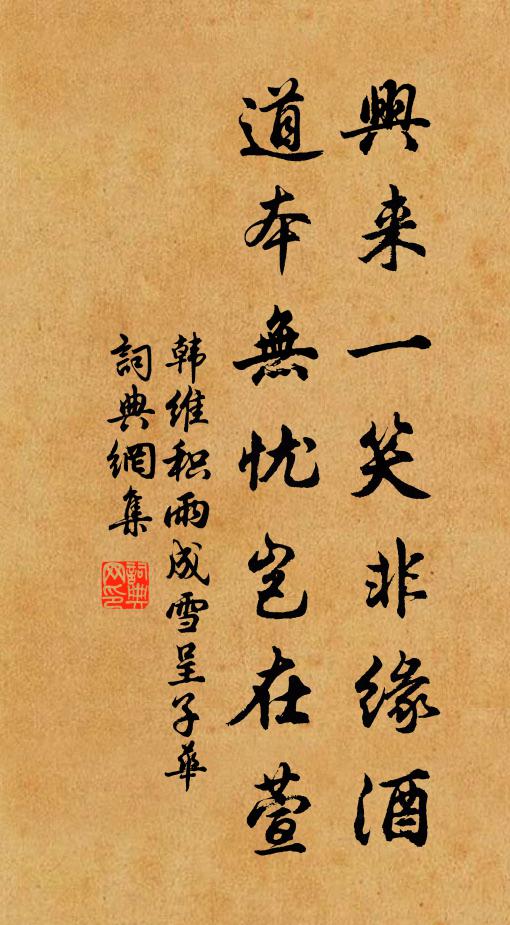 興来一笑非缘酒
道本無忧岂在萱
韩维积雨成雪呈子華
詞典網集
詞典网印